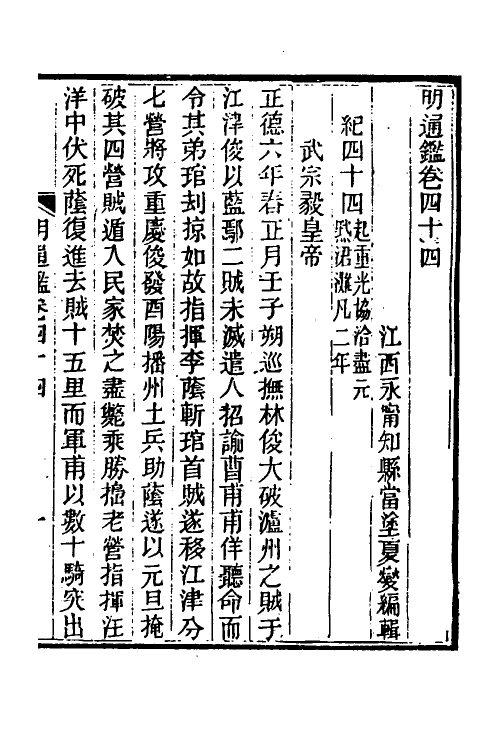 明通鑑卷四十四
江西永甯知縣當塗夏燮編輯
紀四十四起重光協洽盡元
黓涒灘凡二年
武宗毅皇帝
正德六年春正月壬子朔巡撫林俊大破瀘州之賊于
江津俊以藍鄢二賊未滅遣人招諭曹甫甫佯聽命而
令其弟琯刦掠如故指揮李蔭斬琯首賊遂移江津分
七營將攻重慶俊發酉陽播州土兵助蔭遂以元旦掩
破其四營賊遁入民家焚之盡斃乘勝擣老營指揮汪
洋中伏死蔭復進去賊十五里而軍甫以數十騎突出
明通鑑卷四十四 一